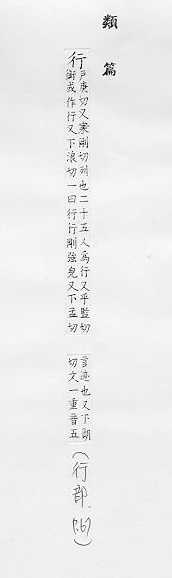 類篇
行
戶庚切又寒剛切列也二十五人爲行又乎監切
衘或作行又下浪切一曰行行剛強皃又下孟切
言迹也又下朗
切文一重音五
(行部.